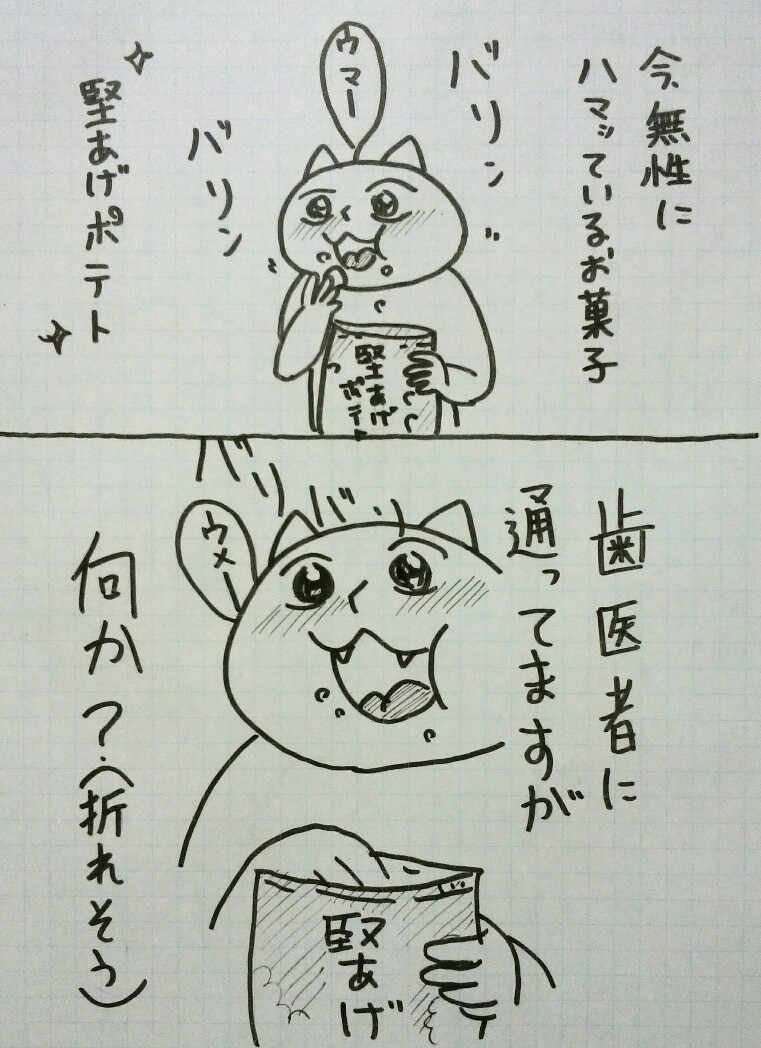 今無性に
ハマッているお菓子
バリン
ウマー
バリン
堅あげポテト
堅あげ
ポテト
歯医者に
通ってますが
バリバリ
ウメー
何か？(折れそう)
堅あげ